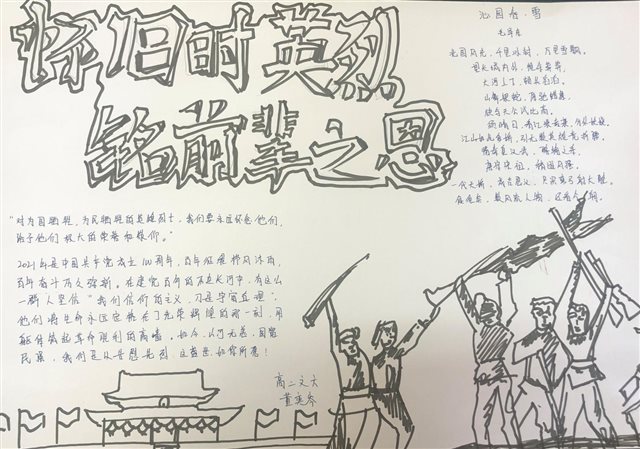 怀旧时英烈
铭前辈之恩
沁园春·雪
毛泽东
北国风光，千里冰封，万里雪飘。
望长城内外，惟余莽莽，
大河上下，顿失滔滔。
山舞银蛇，原驰蜡象，
欲与天公试比高。
须晴日，看红装素裹，分外妖娆。
江山如此多娇，引无数英雄竞折腰。
惜秦皇汉武，略输文采，
唐宗宋祖，稍逊风骚。
一代天骄，成吉思汗，只识弯弓射大雕。
俱往矣，数风流人物，还看今朝。
“对为国牺牲，为民牺牲的英雄烈士，我们要永远怀念他们，
给予他们极大的荣誉和敬仰。”
2021年是中国共产党成立100周年，百年征程栉风沐雨，
百年奋斗历久弥新。在建党百年的历史长河中，有这么
一群人坚信“我们信仰的主义，乃是宇宙真理”：
他们将生命永远定格在了光荣辉煌的那一刻，用
躯体筑起革命胜利的高墙。如今，山河无恙，国富
民康，我们足以告慰先烈，这盛世如你所愿！
高二文大